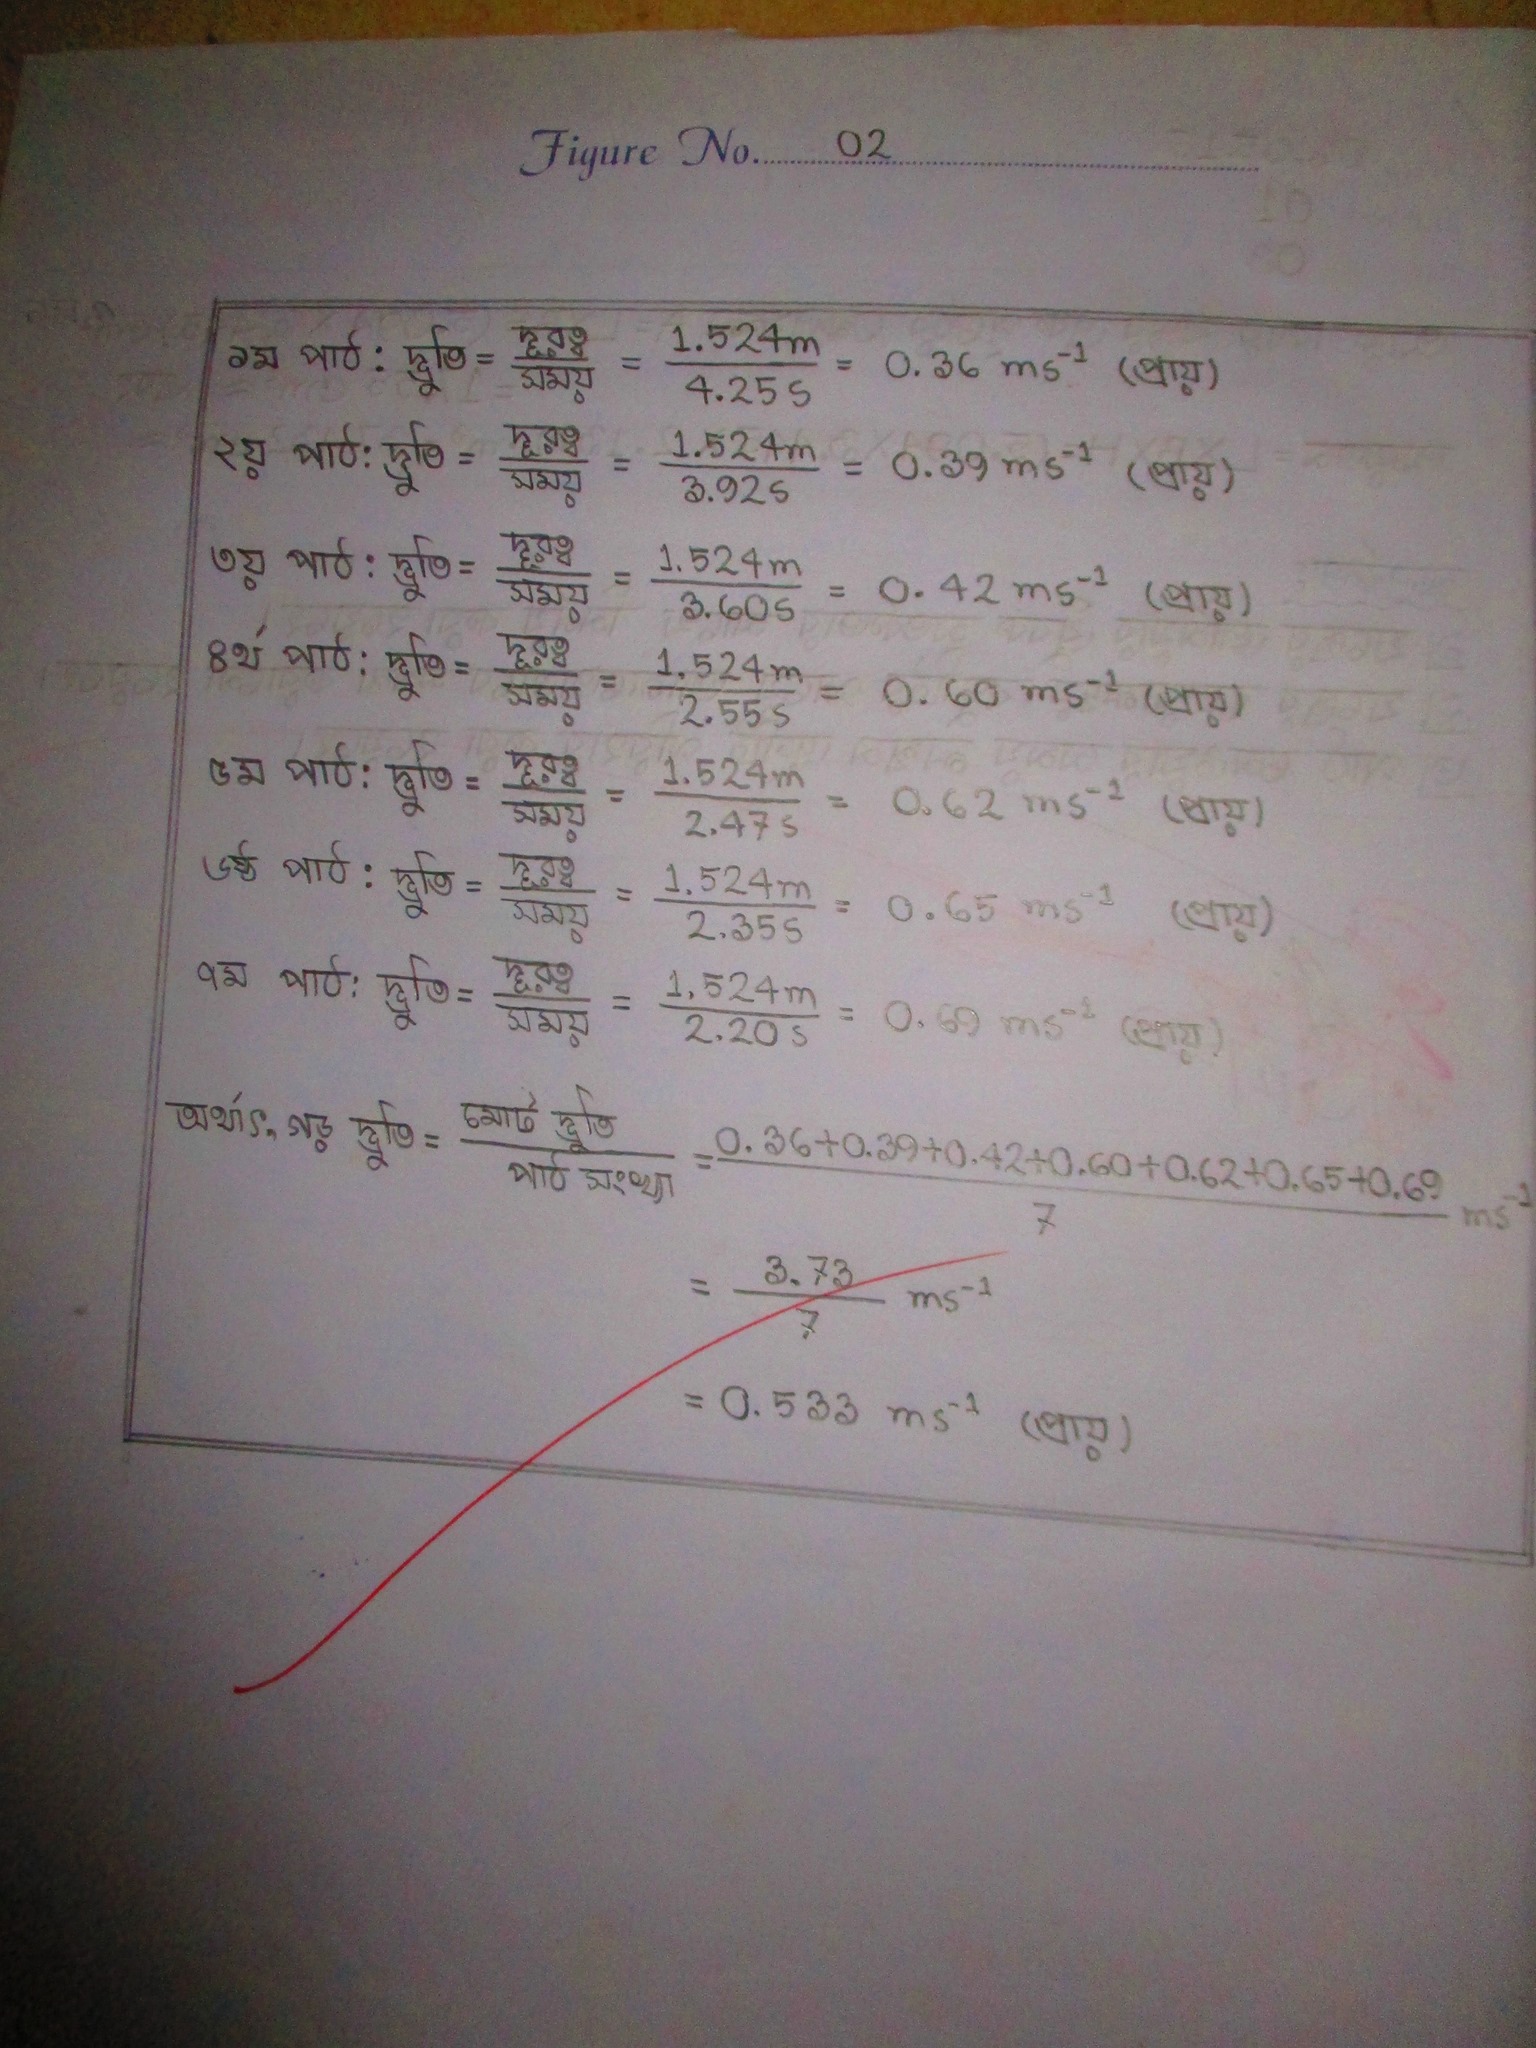 Figure No. 02
১ম পাঠ: দ্রুতি = দূরত্ব/সময় = 1.524m/4.25s = 0.36 ms⁻¹ (প্রায়)
২য় পাঠ: দ্রুতি = দূরত্ব/সময় = 1.524m/3.92s = 0.39 ms⁻¹ (প্রায়)
৩য় পাঠ: দ্রুতি = দূরত্ব/সময় = 1.524m/3.60s = 0.42 ms⁻¹ (প্রায়)
৪র্থ পাঠ: দ্রুতি = দূরত্ব/সময় = 1.524m/2.55s = 0.60 ms⁻¹ (প্রায়)
৫ম পাঠ: দ্রুতি = দূরত্ব/সময় = 1.524m/2.47s = 0.62 ms⁻¹ (প্রায়)
৬ষ্ঠ পাঠ: দ্রুতি = দূরত্ব/সময় = 1.524m/2.35s = 0.65 ms⁻¹ (প্রায়)
৭ম পাঠ: দ্রুতি = দূরত্ব/সময় = 1.524m/2.20s = 0.69 ms⁻¹ (প্রায়)
অর্থাৎ, গড় দ্রুতি = মোট দ্রুতি/পাঠ সংখ্যা = 0.36+0.39+0.42+0.60+0.62+0.65+0.69/7 ms⁻¹
= 3.73/7 ms⁻¹
= 0.533 ms⁻¹ (প্রায়)